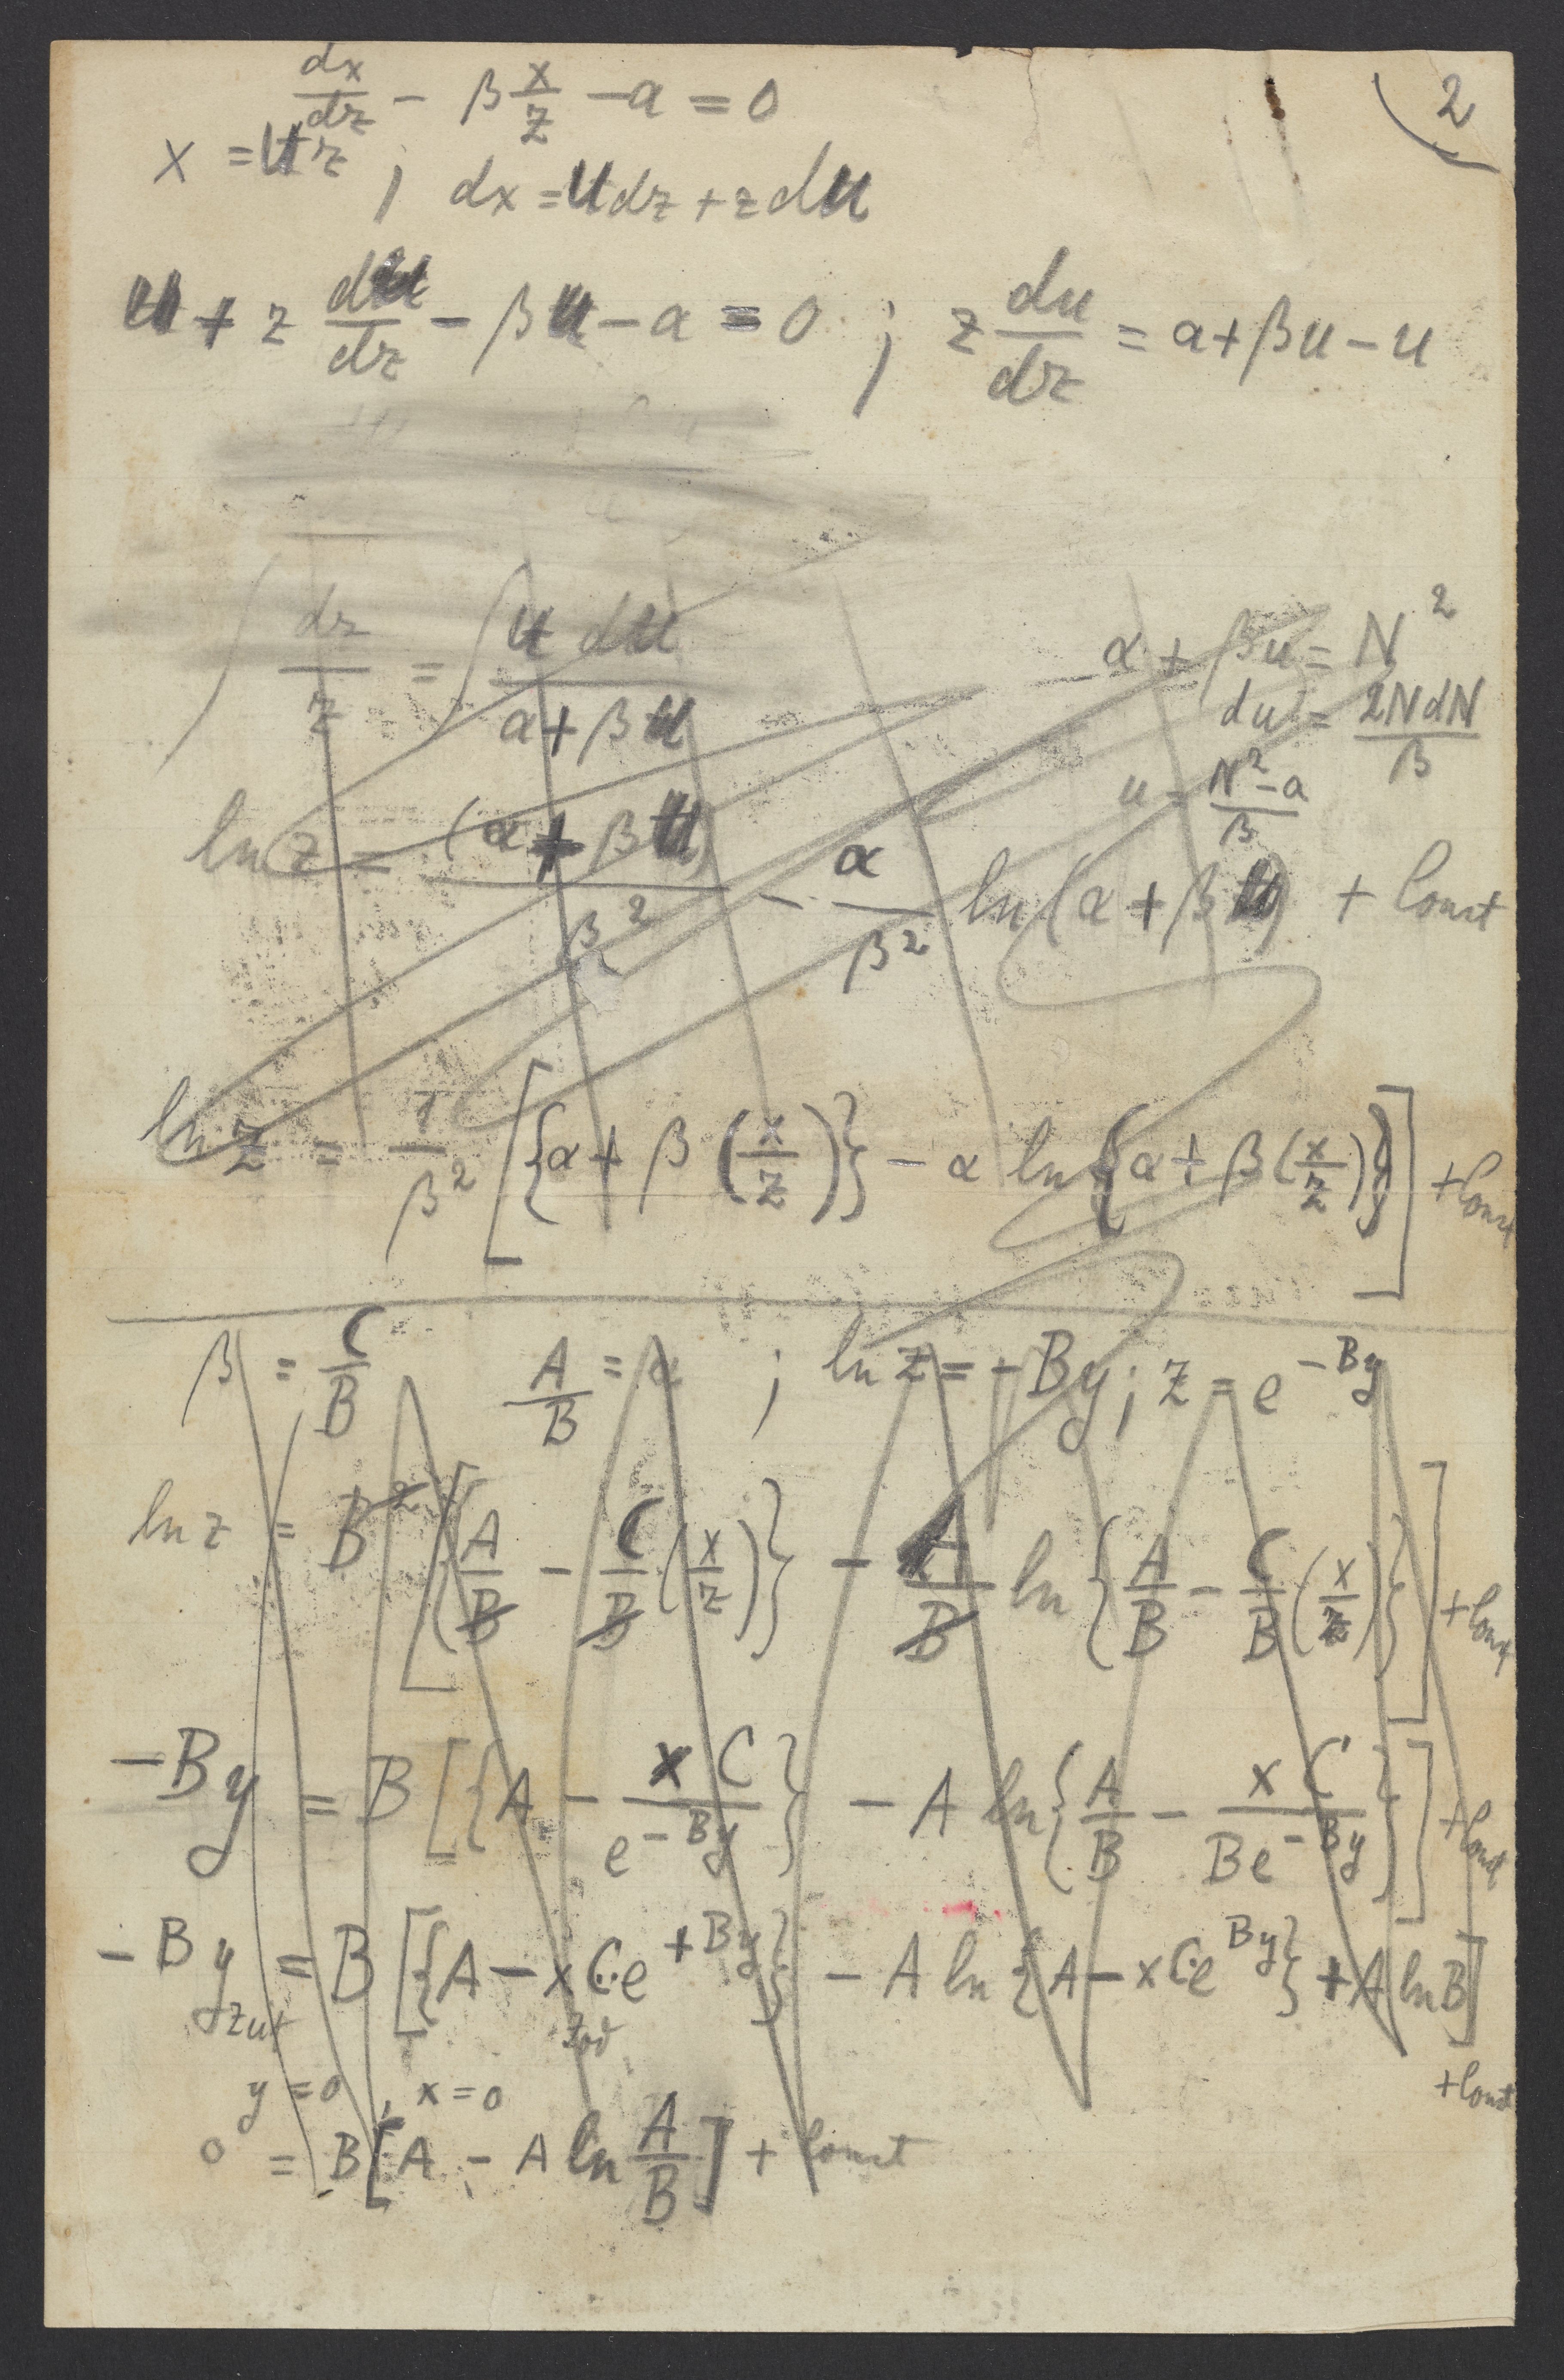 2
dx/dz - β x/z - a = 0
x = uz ; dx = udz + zdu
u + z du/dz - βu - a = 0 ; z du/dz = a + βu - u
∫ dz/z = ∫ u du/(a + βu)
α + βu = N²
du = 2NdN/β
u = (N² - a)/β
ln z = (α + βu)/β² - α/β² ln(α + βu) + Const
ln z = 1/β² [{α + β(x/z)} - α ln{α + β(x/z)}] + Const
β = C/B A/B = α ; ln z = -By ; z = e^(-By)
ln z = B² [{A/B - C/B (x/z)} - A/B ln{A/B - C/B (x/z)}] + Const
-By = B [{A - xC/e^(-By)} - A ln{A/B - xC/Be^(-By)}] + Const
-By = B [{A - xCe^(+By)} - A ln{A - xCe^(By)} + A ln B]
+ Const
y = 0, x = 0
0 = B [A - A ln A/B] + Const